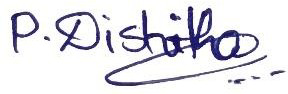 P. Dishitha